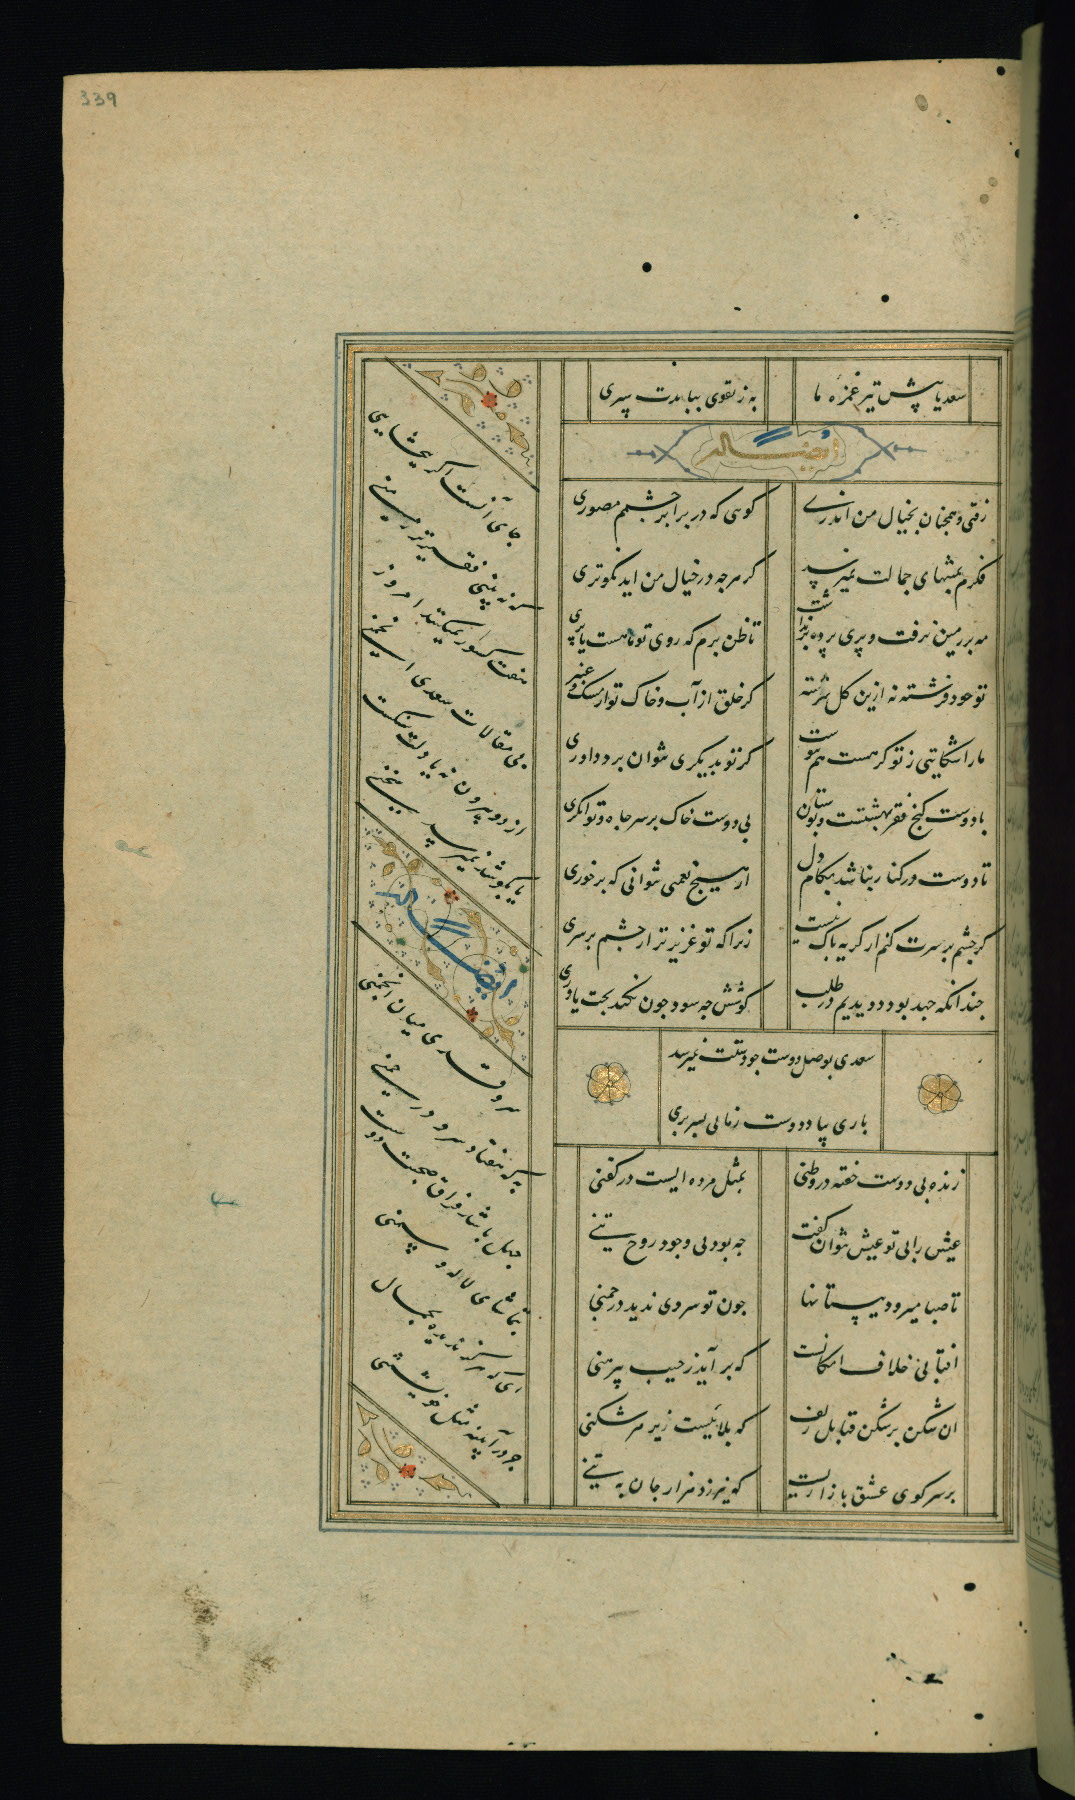 339
سعدیا پیش تیر غمزه ما
به ز تقوی ببایدت سپری
ایضاً له
رفتی و همچنان بخیال من اندری
کوئی که در برابر چشمم مصوری
فکرم بمنتهای جمالت نمیرسد
کز هر چه در خیال من اید نکوتری
مه بر زمین نرفت و پری پرده برنداشت
تا ظن برم که روی تو ماهست یا پری
تو خود فرشته نه ازین کل سرشته
کر خلق از آب و خاک تو از مشک و عنبری
ما را شکایتی ز تو کر هست هم بتوست
کز تو بدیکری نتوان برد داوری
با دوست کنج فقر بهشتست و بوستان
بی دوست خاک بر سر جاه و توانکری
تا دوست در کنار نباشد بکام دل
از هیچ نعمتی نتوانی که برخوری
کر چشم بر سرت کنم از کریه باک نیست
زیرا که تو عزیزتر از چشم بر سری
چندانکه جهد بود دویدیم در طلب
کوشش چه سود چون نکند بخت یاوری
سعدی بوصل دوست چو دستت نمیرسد
باری بیاد دوست زمانی بسر بری
زنده بی دوست خفته در وطنی
بمثل مرده ایست در کفنی
عیش را بی تو عیش نتوان کفت
چه بود بی وجود روح تنی
تا صبا میرود ببستانها
چون تو سروی ندید در چمنی
افتابی خلاف امکانست
که بر آید ز جیب پیرهنی
ان شکن بر شکن قبایل زلف
که بلائیست زیر هر شکنی
بر سر کوی عشق بازاریست
که نیرزد هزار جان به تنی
جای آنست اکر بخشایی
که نه بینی فقیرتر ز منی
هفت کشور نمیکنند امروز
بی مقالات سعدی انجمنی
از دو بیرون نه یا دلت سنکیست
یا بکوشت نمیرسد سخنی
ایضاً له
سرو قدی میان انجمنی
به که هفتاد سرو در چمنی
جهل باشد فراق صحبت دوست
بتماشای لاله و سمنی
ای که هرکز ندیده بجمال
جز در آینه مثل خویشتنی